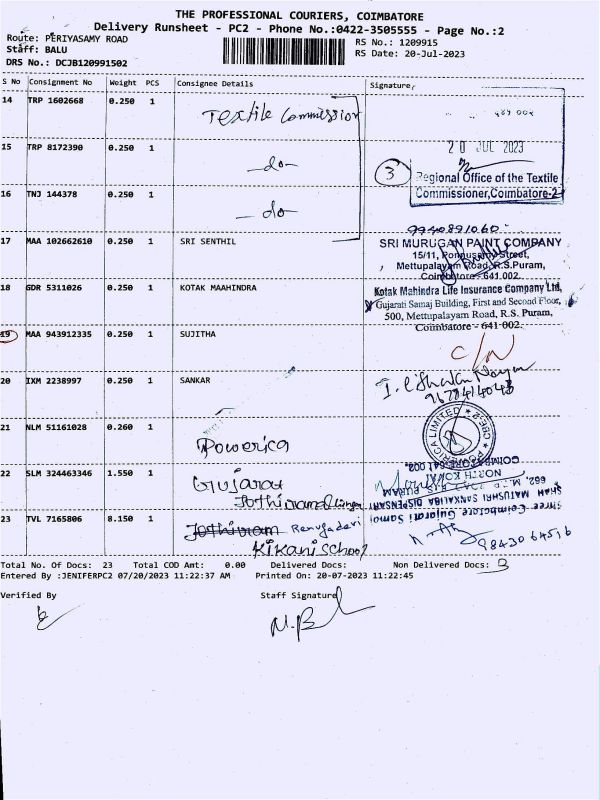 THE PROFESSIONAL COURIERS, COIMBATORE
Delivery Runsheet - PC2 - Phone No.:0422-3505555 - Page No.:2
Route: PERIYASAMY ROAD RS No.: 1209915
Staff: BALU RS Date: 20-Jul-2023
DRS No.: DCJB120991502
S No Consignment No Weight PCS Consignee Details Signature
14 TRP 1602668 0.250 1 Textile Commission
15 TRP 8172390 0.250 1 -do- 20 JUL 2023
3 Regional Office of the Textile
16 TNJ 144378 0.250 1 -do- Commissioner, Coimbatore-2
9940891060
17 MAA 102662610 0.250 1 SRI SENTHIL SRI MURUGAN PAINT COMPANY
15/11, Ponnusamy Street,
Mettupalayam Road, R.S.Puram,
Coimbatore - 641 002.
18 GDR 5311026 0.250 1 KOTAK MAAHINDRA Kotak Mahindra Life Insurance Company Ltd,
Gujarati Samaj Building, First and Second Floor,
500, Mettupalayam Road, R.S. Puram,
Coimbatore - 641 002.
19 MAA 943912335 0.250 1 SUJITHA C/N
20 IXM 2238997 0.250 1 SANKAR
21 NLM 51161028 0.260 1 Powerica
COIMBATORE-641 002.
22 SLM 324463346 1.550 1 Gujarat
662, M.T.P. ROAD, R.S. PURAM
SHAH MATUSHRI SANKALIBA DISPENSARY
Shree Coimbatore Gujarati Samaj
23 TVL 7165806 8.150 1 Jothivram Renugadevi
Kikani school 98430 64516
Total No. Of Docs: 23 Total COD Amt: 0.00 Delivered Docs: Non Delivered Docs: 3
Entered By :JENIFERPC2 07/20/2023 11:22:37 AM Printed On: 20-07-2023 11:22:45
Verified By Staff Signature
M.B